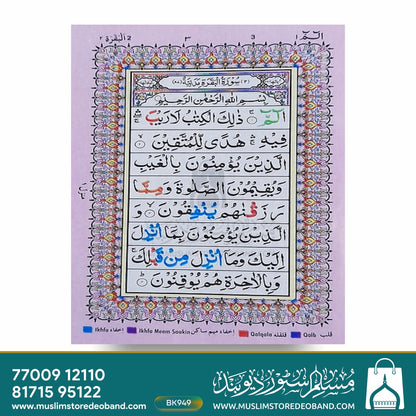 ٢ البقرة 2
٣
3
١
الٓمّٓ ١
سُوْرَةُ الْبَقَرَةِ مَدَنِيَّةٌ
بِسْمِ اللّٰهِ الرَّحْمٰنِ الرَّحِيْمِ
الٓمّٓ ۚ ذٰلِكَ الْكِتٰبُ لَا رَيْبَ
فِيْهِ ۚ هُدًى لِّلْمُتَّقِيْنَ
الَّذِيْنَ يُؤْمِنُوْنَ بِالْغَيْبِ
وَيُقِيْمُوْنَ الصَّلٰوةَ وَمِمَّا
رَزَقْنٰهُمْ يُنْفِقُوْنَ
وَالَّذِيْنَ يُؤْمِنُوْنَ بِمَآ اُنْزِلَ
اِلَيْكَ وَمَآ اُنْزِلَ مِنْ قَبْلِكَ ۚ
وَبِالْاٰخِرَةِ هُمْ يُوْقِنُوْنَ
Ikhfa اخفاء Ikhfa Meem Saakin اخفاء میم ساکن Qalqala قلقله Qalb قلب
77009 12110
81715 95122
BK949
WWW.MUSLIMSTOREDEOBAND.COM
مسلم سٹور دیوبند
WWW.MUSLIMSTOREDEOBAND.COM